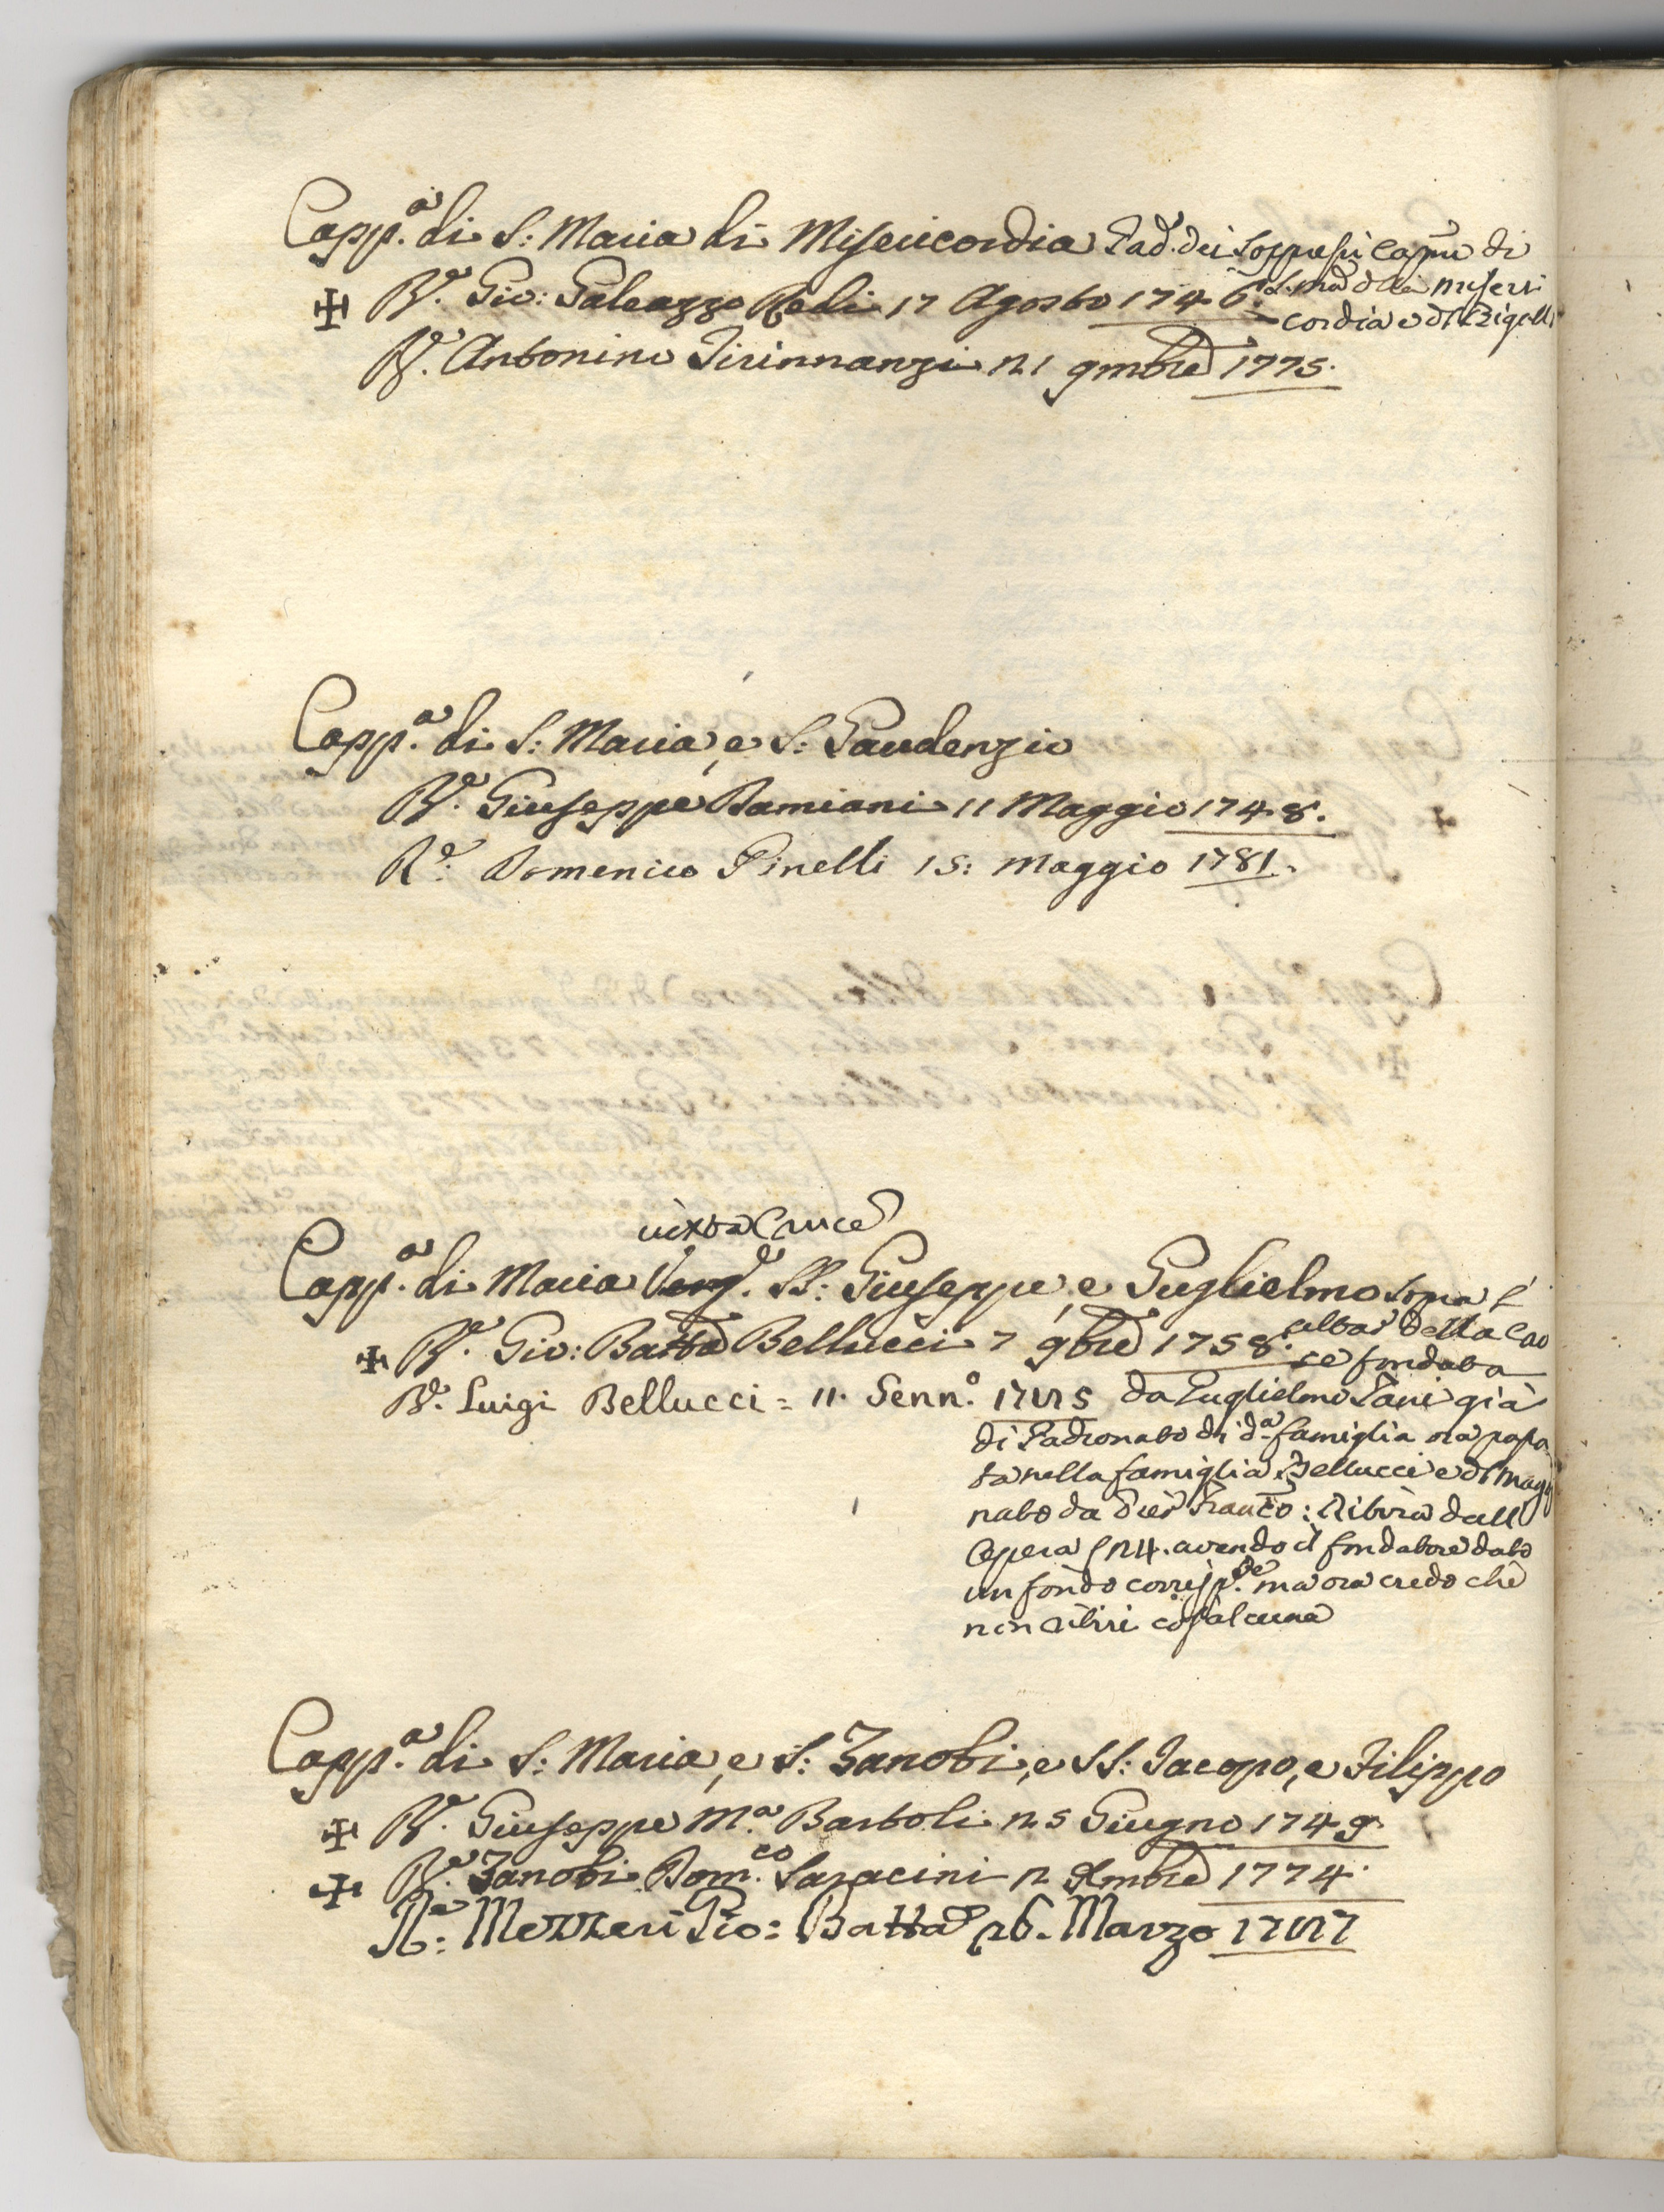 Capp.a di S: Maria di Misericordia Pad. dei Soppressi Capp.ni di
✠ R.o Gio: Galeazzo Redi 17 Agosto 1746. S. Ma della Miseri
cordia e di
R.o Antonino Tirinnanzi 21 9mbre 1775.
Capp.a di S: Maria, e S: Gaudenzio
R.o Giuseppe Damiani 11 Maggio 1748.
R.o Domenico Pinelli 15: Maggio 1781.
iuxta Cruce
Capp.a di Maria Verg.e SS: Giuseppe, e Guglielmo sopra l'
✠ R.o Gio: Batta Bellucci 7 9bre 1758. altar della Cro
ce fondata
R.o Luigi Bellucci = 11. Genn.o 1785 da Guglielmo Pani già
di Padronato di d.a famiglia ora passa
ta nella famiglia Bellucci e di
nato da Franco: Ritira dall
Opera 24. avendo il fondatore dato
un fondo corrisp.te ma ora credo che
non ritiri cosa alcuna
Capp.a di S: Maria, e S: Zanobi, e SS: Jacopo, e Filippo
✠ R.o Giuseppe M.a Bartoli 25 Giugno 1749
✠ R.o Zanobi Dom.co Saracini 2 Xmbre 1774.
R.o Gio: Batta 26. Marzo 1787